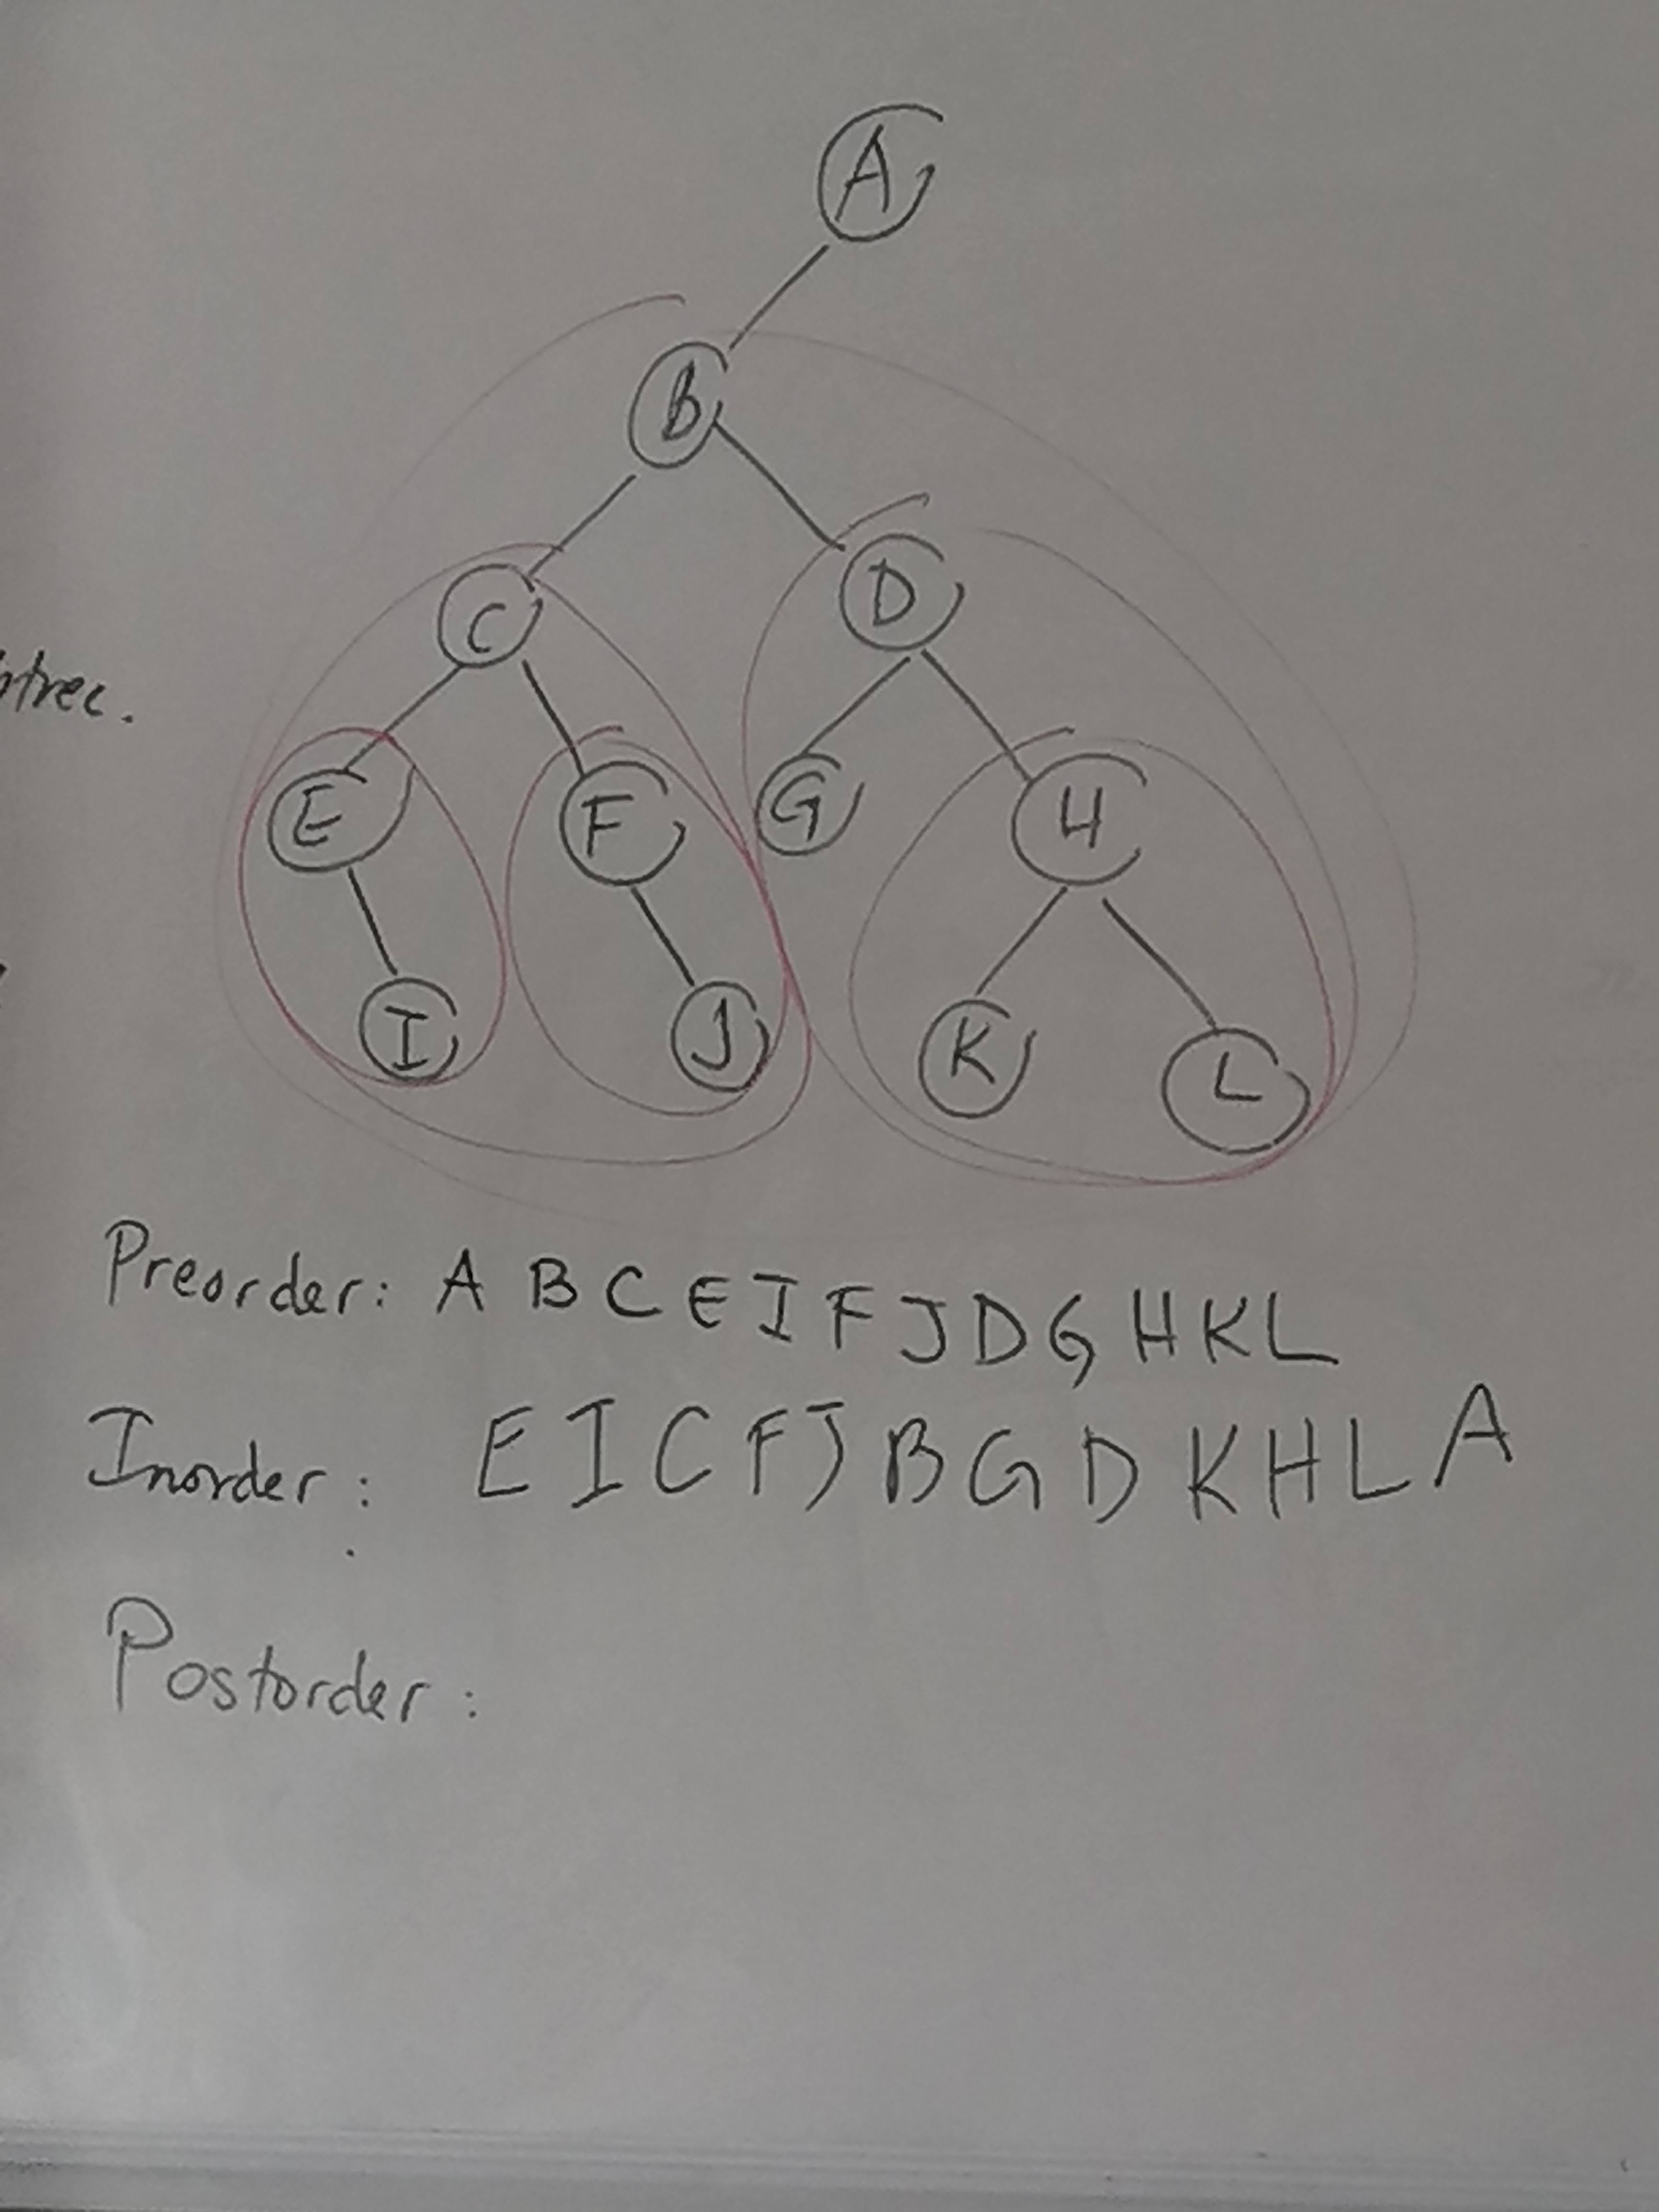 A
B
C D
E F G H
I J K L
Preorder: A B C E I F J D G H K L
Inorder: E I C F J B G D K H L A
Postorder: